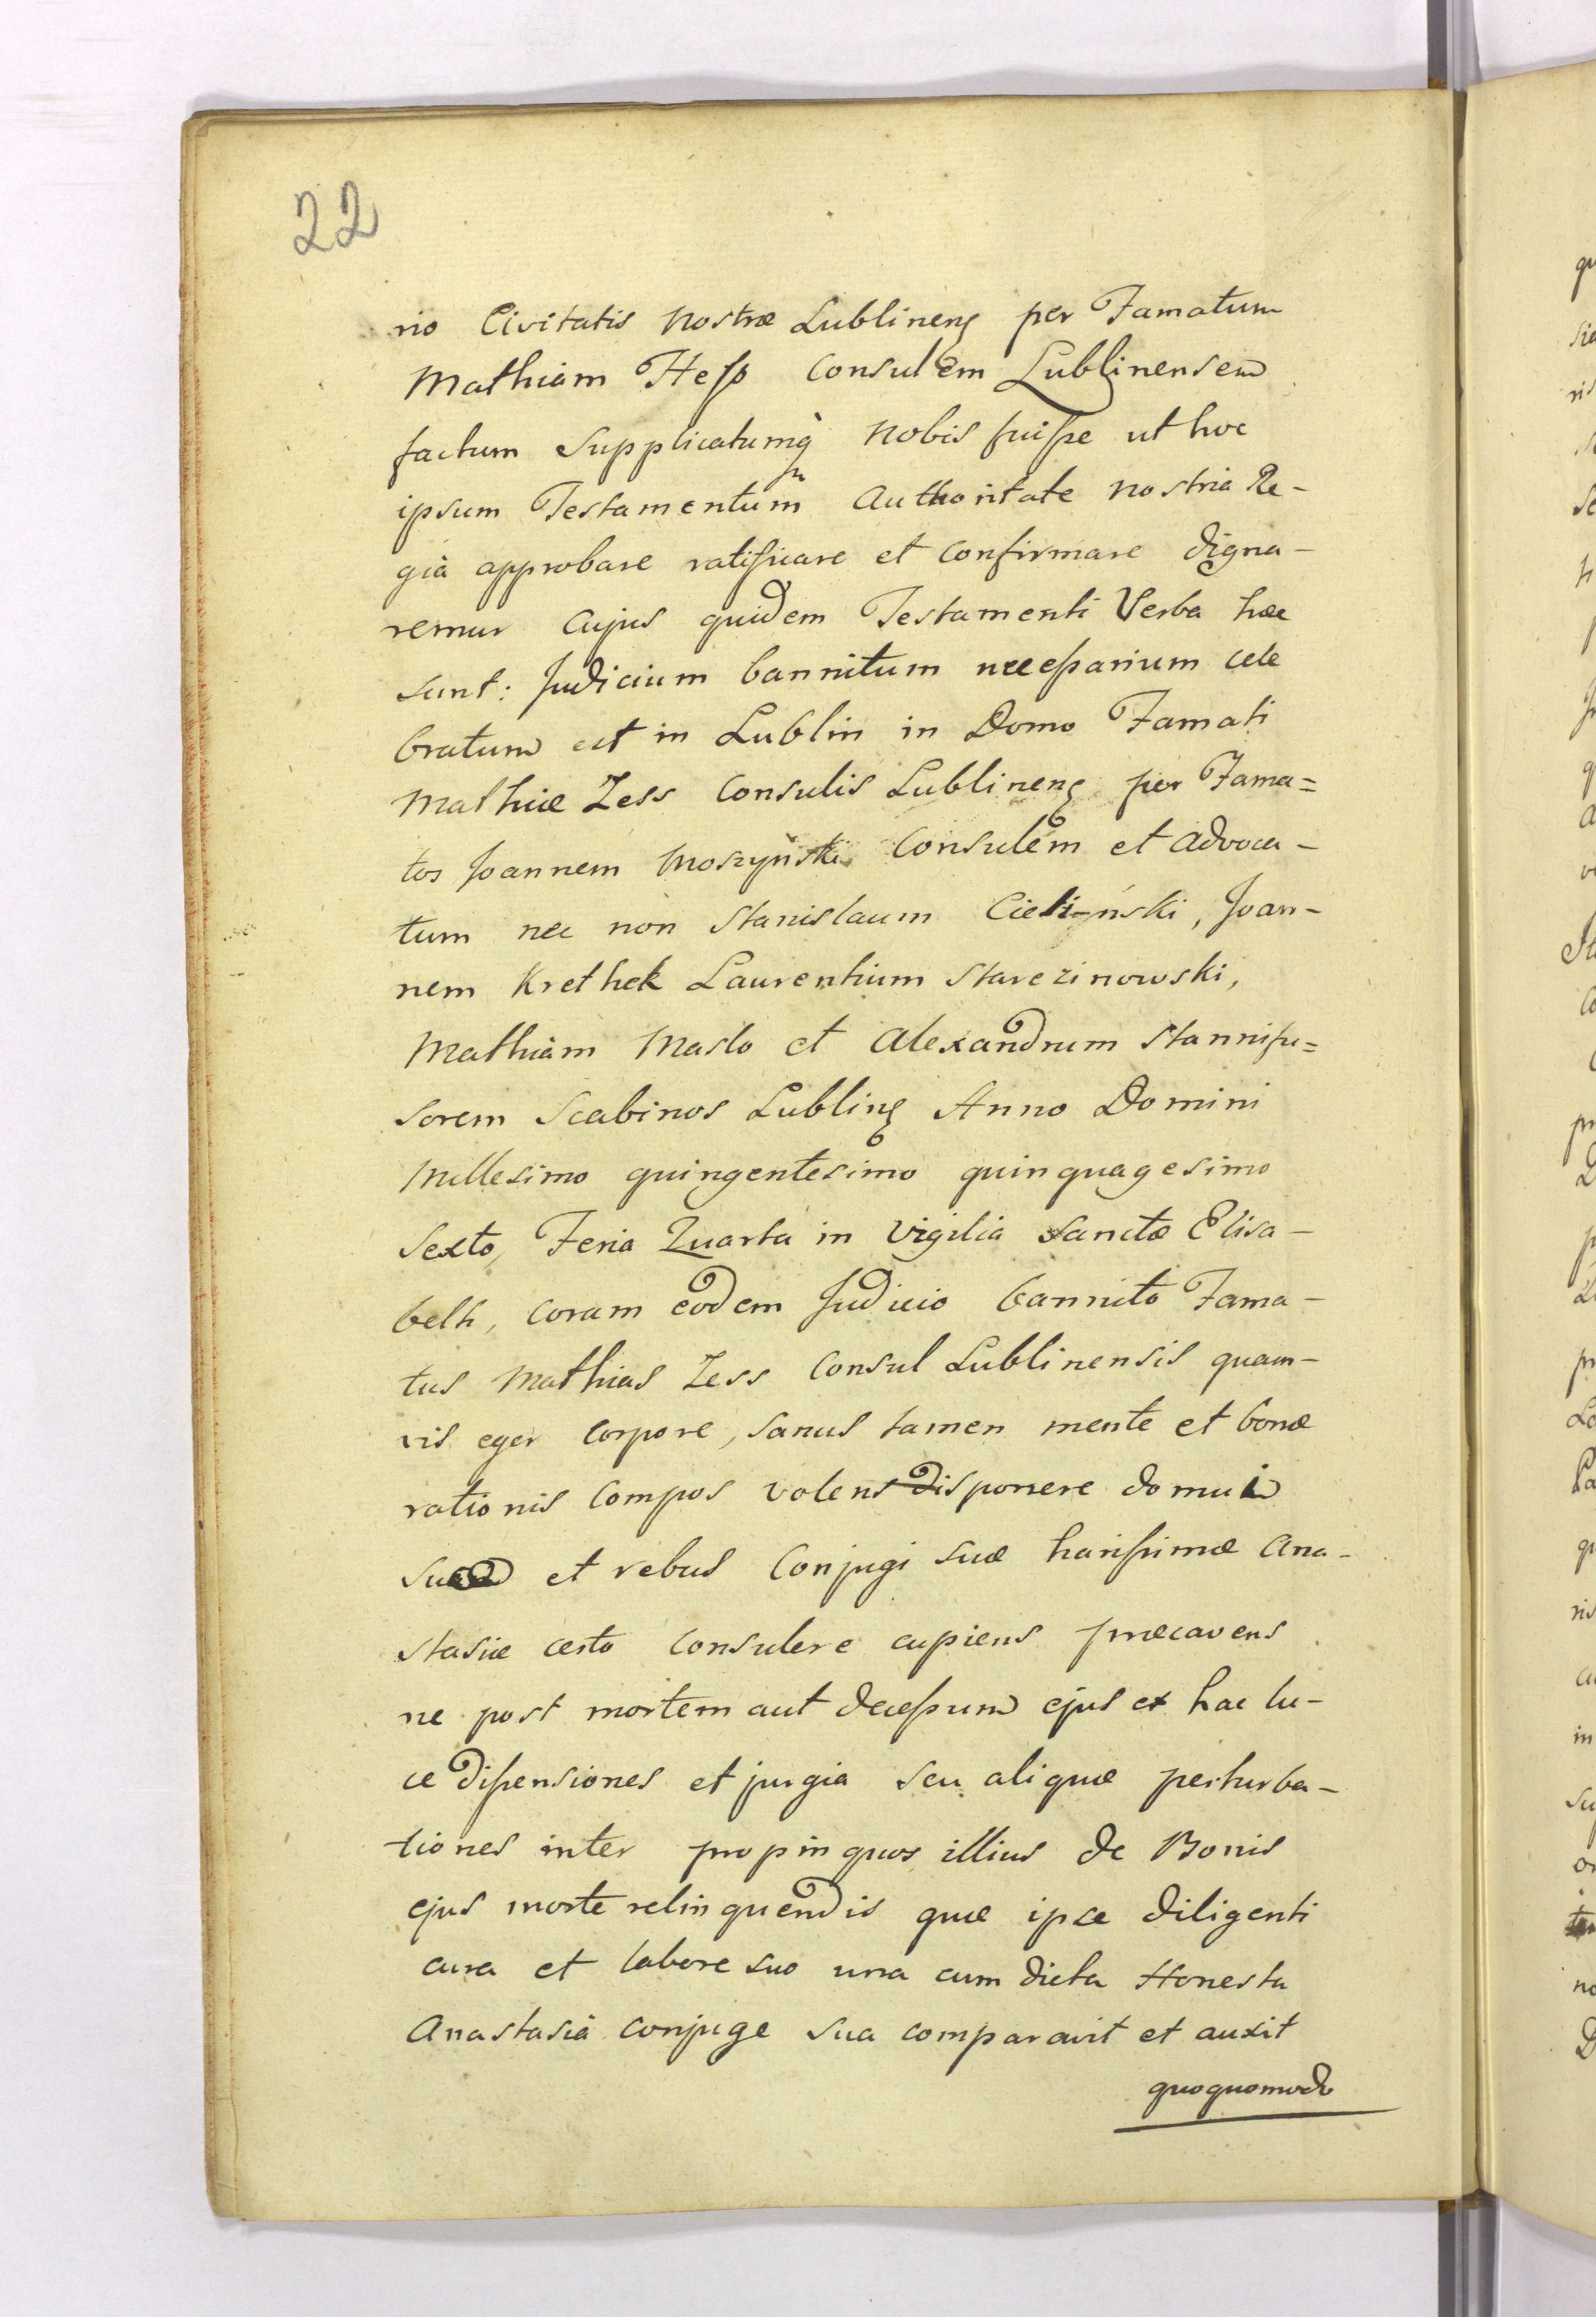 22
rio Civitatis Nostræ Lublinenς per Famatum
Mathiam Heſs Consulem Lublinensem
factum Supplicatumq̀ Nobis fuiſse ut hoc
ipsum Testamentum Authoritate nostria Re-
già approbare ratificare et confirmare digna-
remur Cujus quidem Testamenti Verba hæc
sunt: Judicium bannitum neceſsarium cele
bratum est in Lublin in Domo Famati
Mathiæ Zess Consulis Lublinenς per Fama=
tos Joannem Moszyński Consulem et advoca-
tum nec non Stanislaum Cieli-ński, Joan-
nem Krethek Laurentium Starezinowski,
Mathiam Maslo et Alexandrum Stannifu=
sorem Scabinos Lublinς Anno Domini
Millesimo quingentesimo quinquagesimo
Sexto, Feria Quarta in Vigilia Sanctæ Elisa-
beth, coram eodem Judicio bannito Fama-
tus Mathias Zess Consul Lublinensis quam-
vis eger corpore, sanus tamen mente et bonæ
rationis compos volens disponere domui
et rebus Conjugi suæ hariſsimæ Ana-
stasiæ certo consulere cupiens præcavens
ne post mortem aut deceſsum ejus ex hac lu-
ce diſsensiones et jurgia seu aliquæ perturba-
tiones inter propinquos illius de Bonis
ejus morte relinquendis quæ ipse diligenti
cura et labore suo una cum dicta Honesta
Anastasià conjuge sua comparavit et auxit
quoquomodo